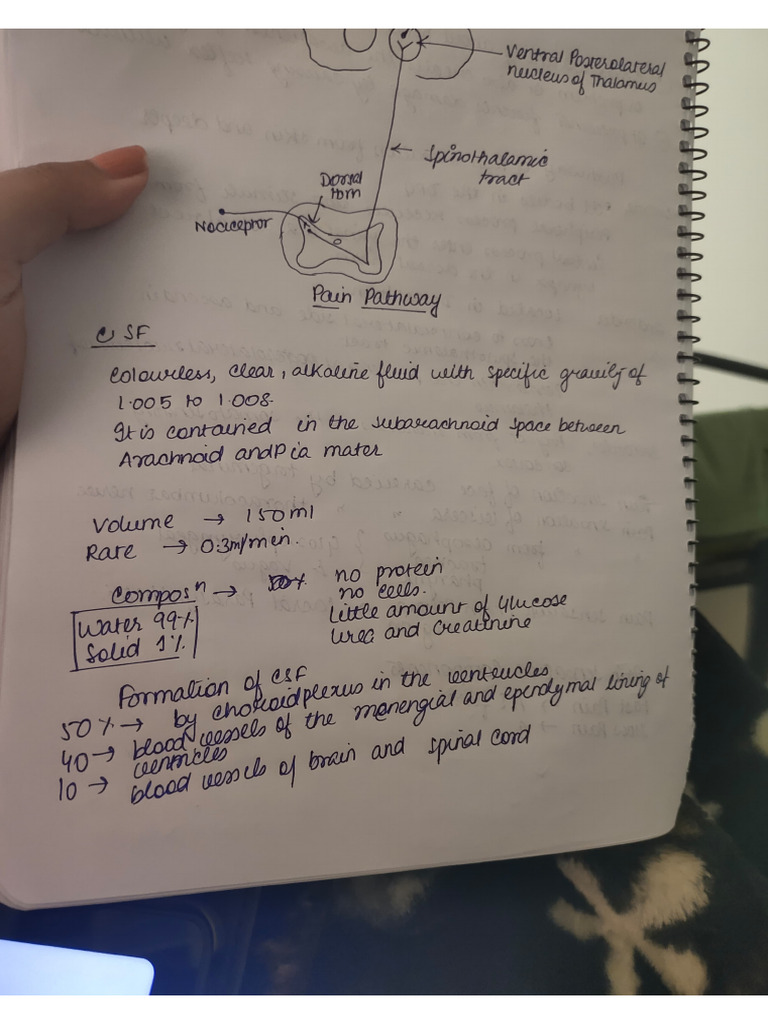 Ventral Posterolateral
nucleus of Thalamus
Spinothalamic
tract
Dorsal
Horn
Nociceptor
Pain Pathway
CSF
Colourless, clear, alkaline fluid with specific gravity of
1.005 to 1.008.
It is contained in the subarachnoid space between
Arachnoid and Pia mater
Volume → 150ml
Rate → 0.3m/min.
Composⁿ → no protein
no cells.
Little amount of Glucose
Urea and Creatinine
Water 99%
Solid 1%
Formation of CSF
50% → by chokoid plexus in the ventricles
40 → blood vessels of the menengial and ependymal lining of
ventricles
10 → blood vessels of brain and spinal cord